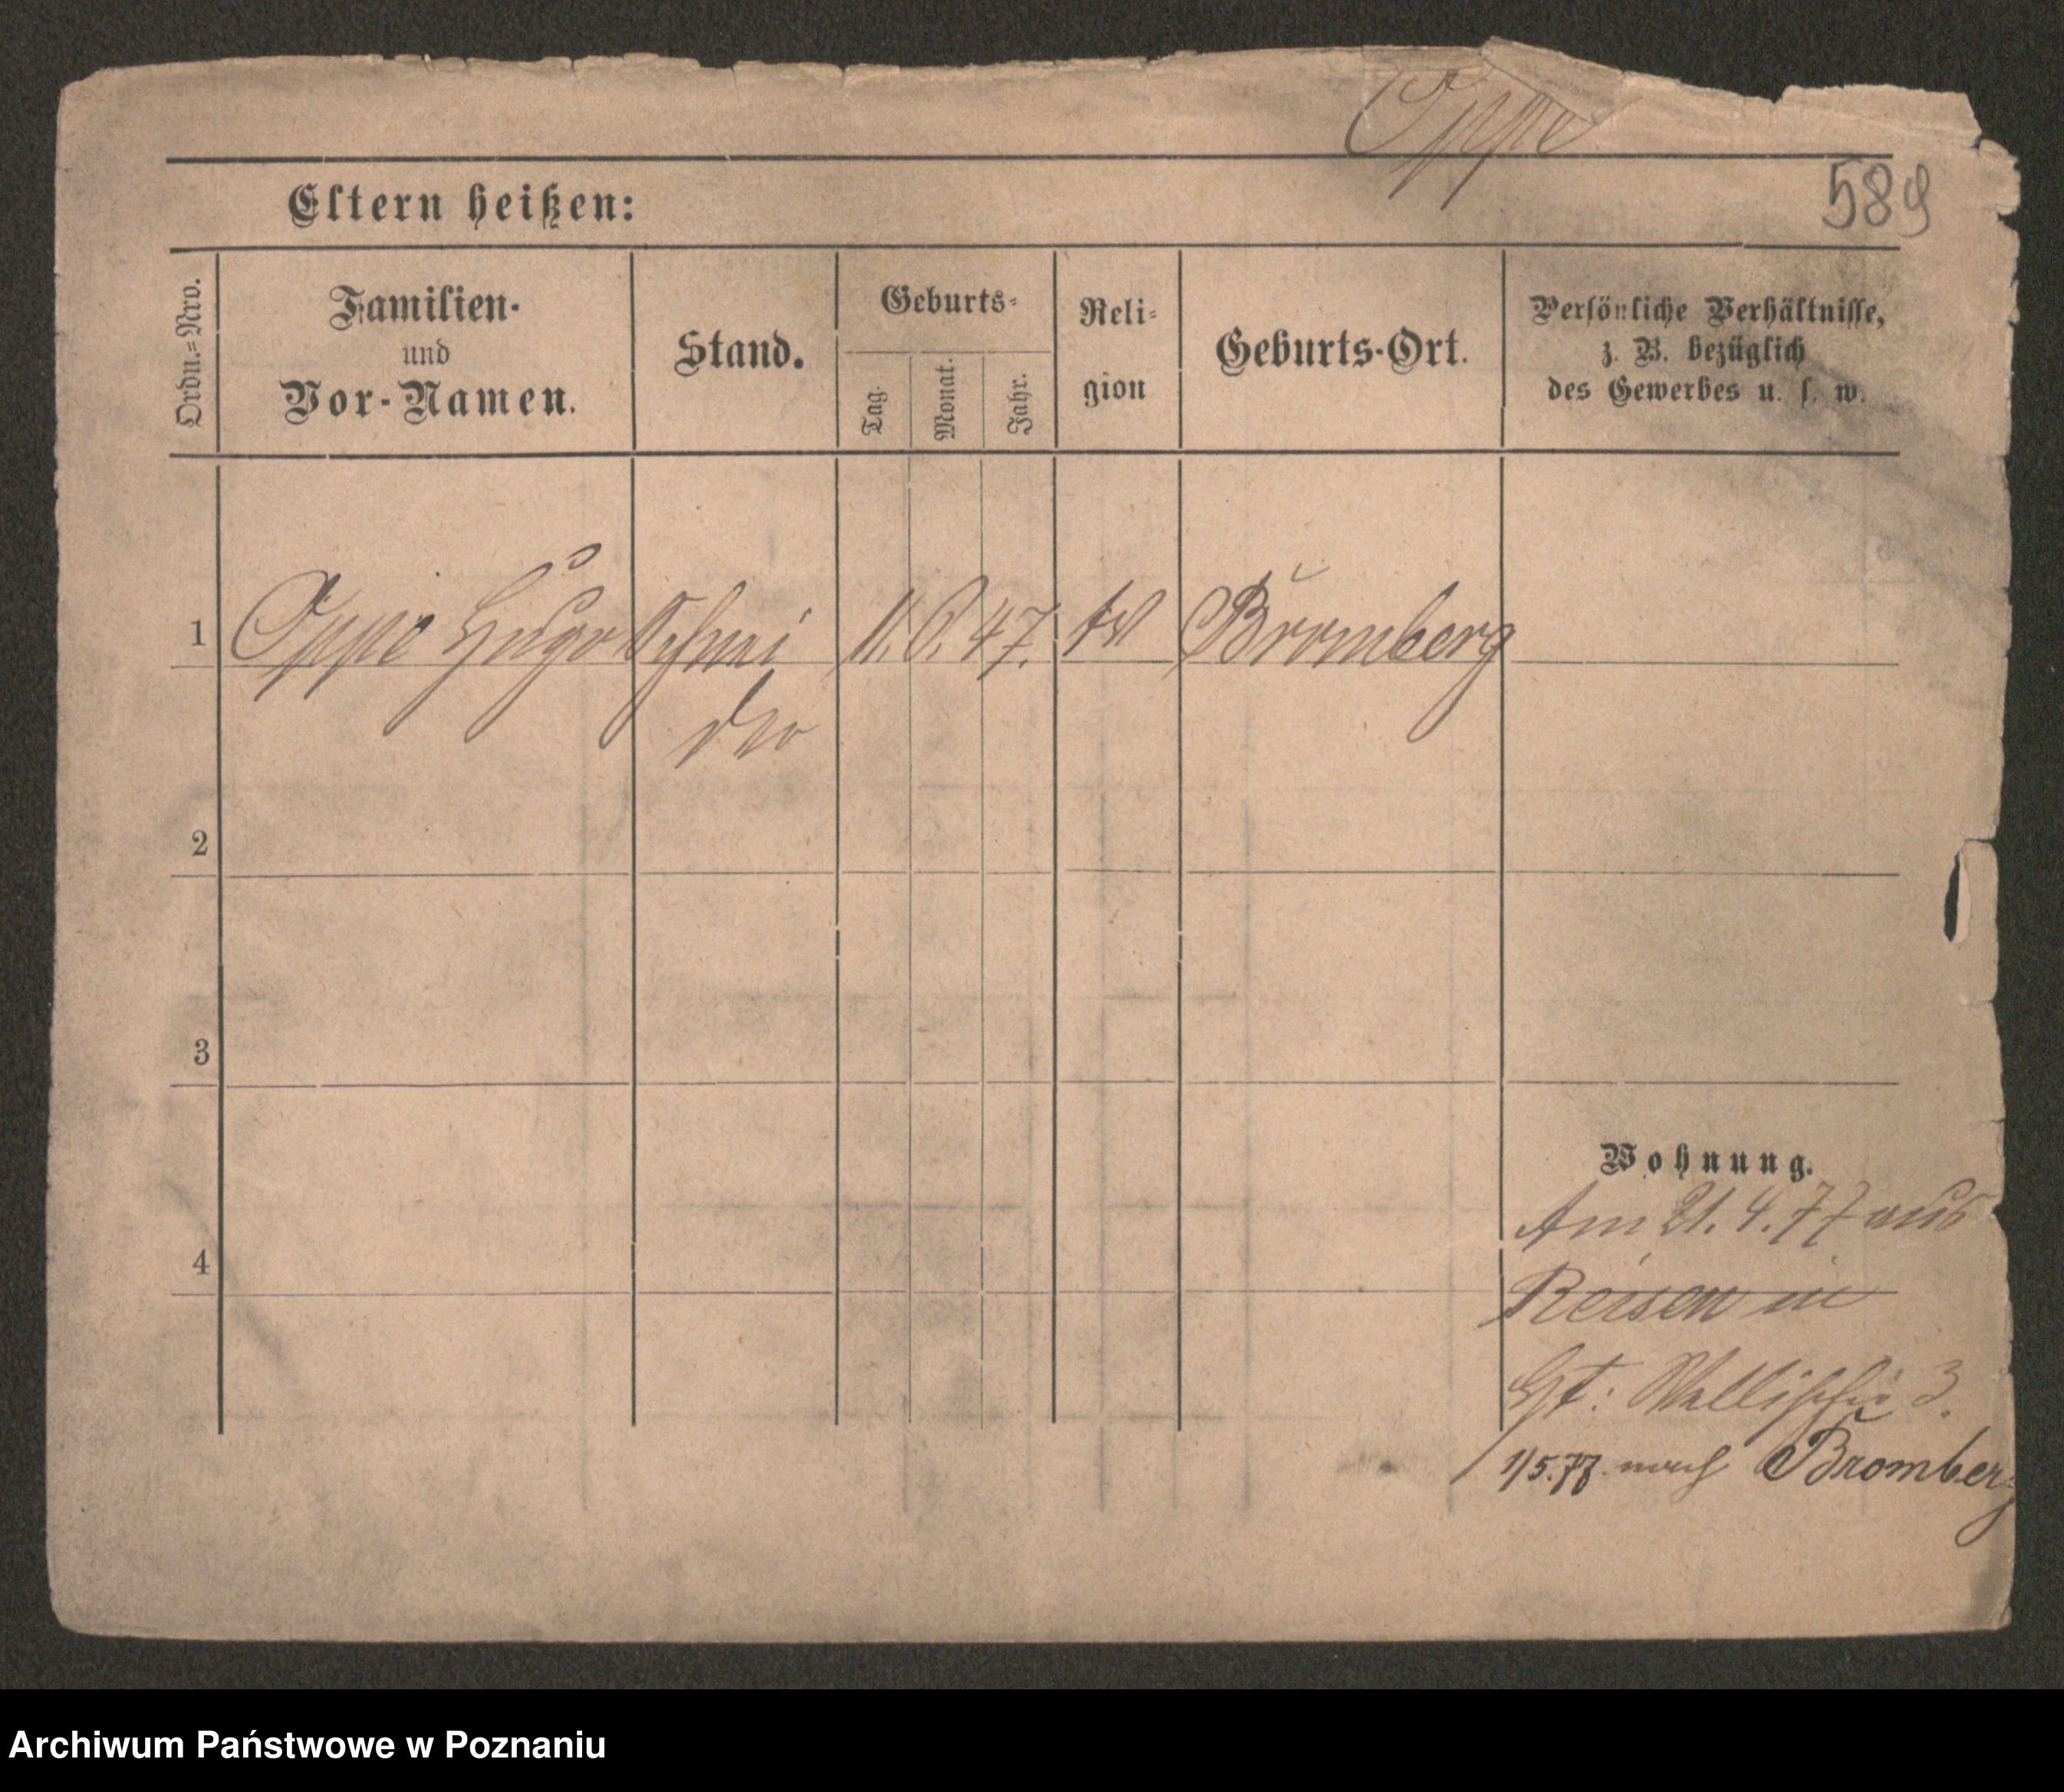 Oppe
589
Eltern heißen:
Ordn.-Nro.
Familien-
und
Vor-Namen.
Stand.
Geburts-
Tag.
Monat.
Jahr.
Reli-
gion
Geburts-Ort.
Persönliche Verhältnisse,
z. B. bezüglich
des Gewerbes u. s. w.
1 Oppe Hugo Schnei 11. 6. 47. ev Bromberg
der
2
3
4
Wohnung.
Am 21. 4. 77 aus
Reisen in
Gt: Wallischei 3.
1/5.77. nach Bromberg
Archiwum Państwowe w Poznaniu